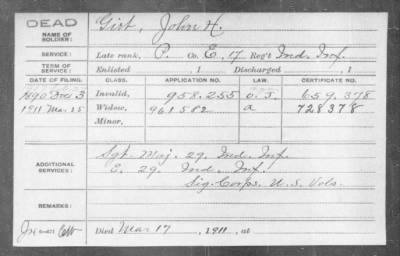 DEAD
NAME OF SOLDIER: Gist, John H.
SERVICE: Late rank, P. Co. E, 17 Reg't Ind. Inf.
TERM OF SERVICE: Enlisted , 1 Discharged , 1
DATE OF FILING. CLASS. APPLICATION NO. LAW. CERTIFICATE NO.
1890 Dec 3 Invalid, 958.255 O.J. 659.378
1911 Mar. 25 Widow, 961582 a 728378
Minor,
ADDITIONAL SERVICES: Sgt. Maj. 29. Ind. Inf.
E. 29. Ind. Inf.
Sig. Corps. U.S. Vols.
REMARKS:
Died Mar 17, 1911, at